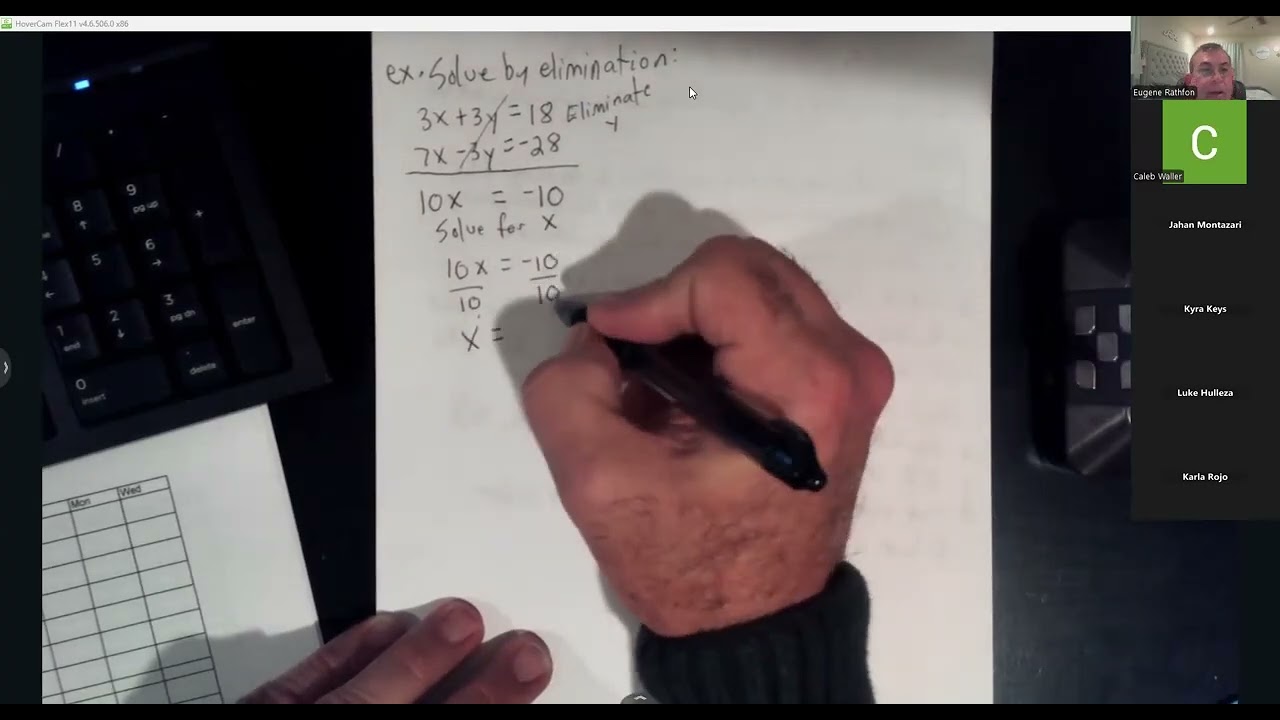 HoverCam Flex11 v4.6.506.0 x86
ex. Solve by elimination:
3x + 3y = 18 Eliminate
y
7x - 3y = -28
10x = -10
Solve for x
10x = -10
10 10
x =
Eugene Rathfon
C
Caleb Waller
Jahan Montazari
Kyra Keys
Luke Hulleza
Karla Rojo
/
+
9
pg up
8
6
5
3
pg dn
2
1
end
enter
0
insert
delete
Mon
Wed